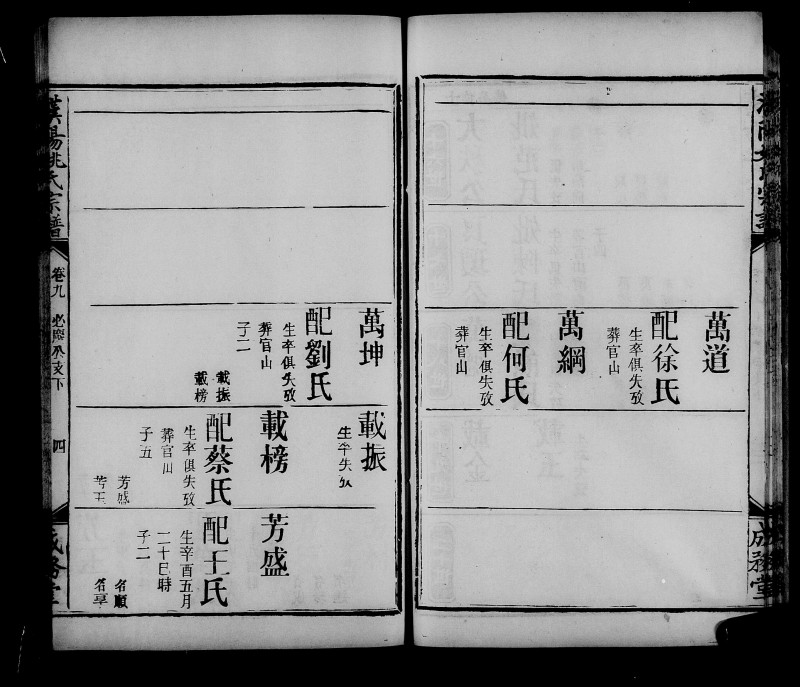 萬道
配徐氏
生卒俱失攷
葬官山
萬綱
配何氏
生卒俱失攷
葬官山
萬坤
配劉氏
生卒俱失攷
葬官山
子二
載振
載榜
載振
生卒失攷
載榜
配蔡氏
生卒俱失攷
葬官山
子五
芳盛
芳玉
芳盛
配王氏
生辛酉五月
二十巳時
子二
名順
名享
漢陽姚氏宗譜
卷九
下
四
成務堂
成務堂